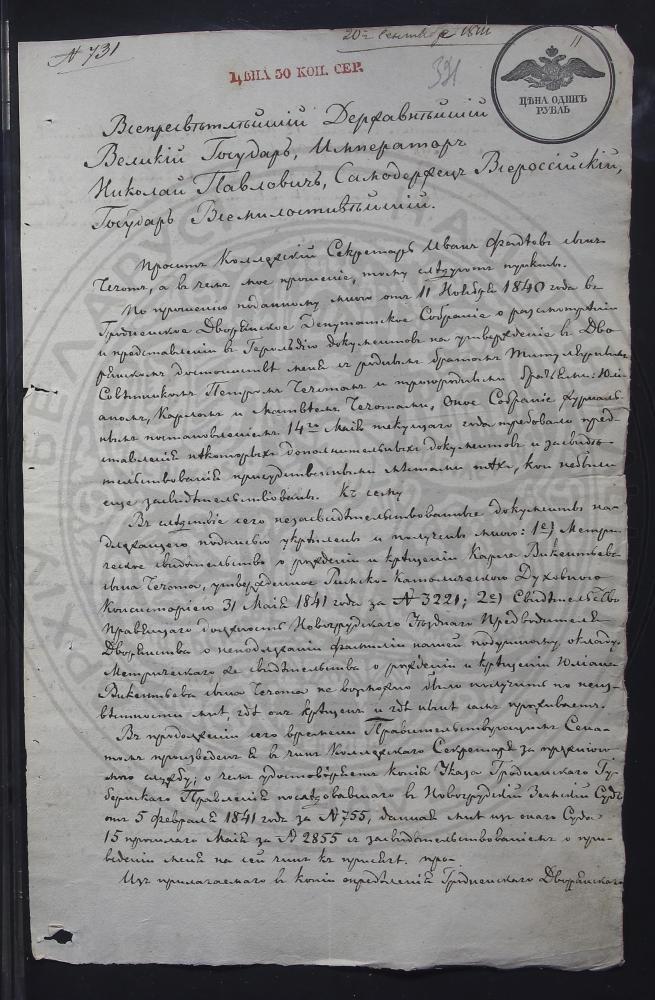 № 731
20го Сентября 1841
11
ЦѢНА 30 КОП. СЕР.
331
ЦѢНА ОДИНЪ
РУБЛЬ
Всепресвѣтлѣйшій Державнѣйшій
Великій Государь, Императоръ
Николай Павловичъ, Самодержецъ Всероссійскій,
Государь Всемилостивѣйшій.
Проситъ Коллежскій Секретарь Иванъ Фадѣевъ сынъ
Чечотъ, а въ чемъ мое прошеніе, тому слѣдуютъ пункты.
По прошенію поданному мною отъ 11 Ноября 1840 года въ
Гродненское Дворянское Депутатское Собраніе о разсмотрѣніи
и представленіи въ Герольдію документовъ на утвержденіе въ Дво-
рянскомъ достоинствѣ меня съ роднымъ братомъ Титулярнымъ
Совѣтникомъ Петромъ Чечотомъ и троюродными братьями: Юлі-
аномъ, Карломъ и Матвѣемъ Чечотами, Оное Собраніе журналь-
нымъ постановленіемъ 14го Мая текущаго года требовало пред-
ставленія нѣкоторыхъ дополнительныхъ документовъ и засвидѣ-
тельствованія присудственными мѣстами тѣхъ, кои небыли
еще засвидѣтельствованы. Къ сему
Въ слѣдствіе сего незасвидѣтельствованные документы на-
длежащего подписью укрѣплены и получены мною: 1е) Метри-
ческое свидѣтельство о рожденіи и крещеніи Карла Викентьева
сына Чечота, утвержденное Римско-Католическою Духовною
Консисторіею 31 Мая 1841 года за № 3221; 2е) Свидѣтельство
Правящаго должность Новогрудскаго Уѣзднаго Предводителя
Дворянства о неподлежаніи фамиліи нашей подушному окладу.
Метрическаго же свидѣтельства о рожденіи и крещеніи Юліана
Викентьева сына Чечота не возможно было получить по неиз-
вѣстности мнѣ, гдѣ онъ крещенъ и гдѣ нынѣ самъ проживаетъ.
Въ продолженіи сего времени Правительствующимъ Сена-
томъ произведенъ я въ чинъ Коллежскаго Секретаря за
службу; о чемъ удостовѣряетъ копія Указа Гродненскаго Гу-
бернскаго Правленія послѣдовавшаго въ Новогрудскій Земскій Судъ
отъ 5 февраля 1841 года за № 755, данная мнѣ изъ онаго Суда
15 прошлаго Мая за № 2855 съ засвидѣтельствованіемъ о при-
веденіи меня на сей чинъ къ присягѣ. про-
Изъ прилагаемаго въ копіи опредѣленія Гродненскаго Дворянскаго